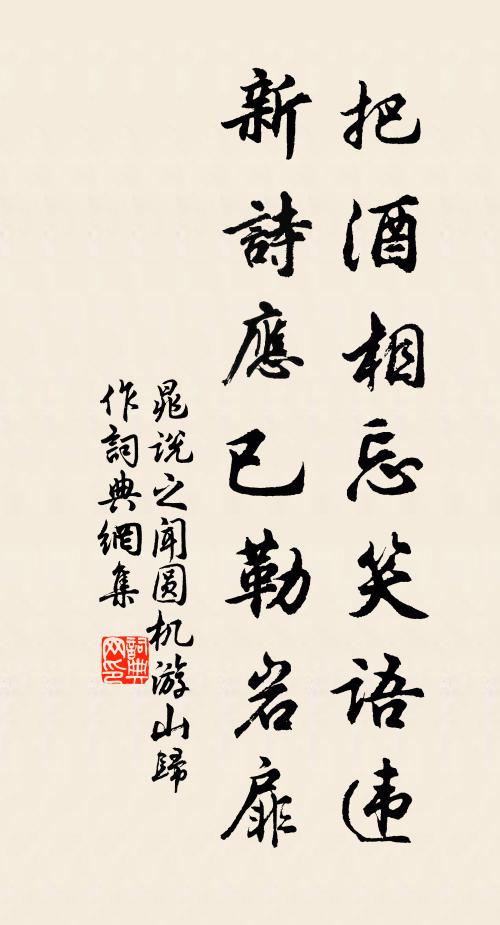 把酒相忘笑语违
新詩應已勒岩扉
晁说之闻圆机游山歸
作詞典網集
詞典网印